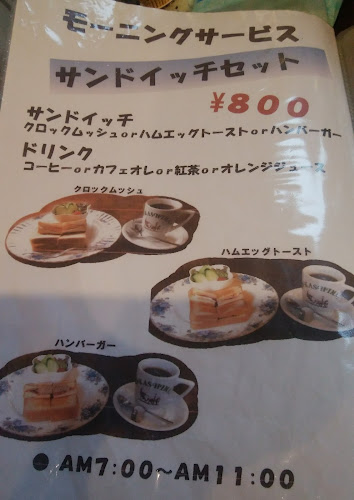 モーニングサービス
サンドイッチセット
¥800
サンドイッチ
クロックムッシュorハムエッグトーストorハンバーガー
ドリンク
コーヒーorカフェオレor紅茶orオレンジジュース
クロックムッシュ
ハムエッグトースト
ハンバーガー
● AM7:00～AM11:00